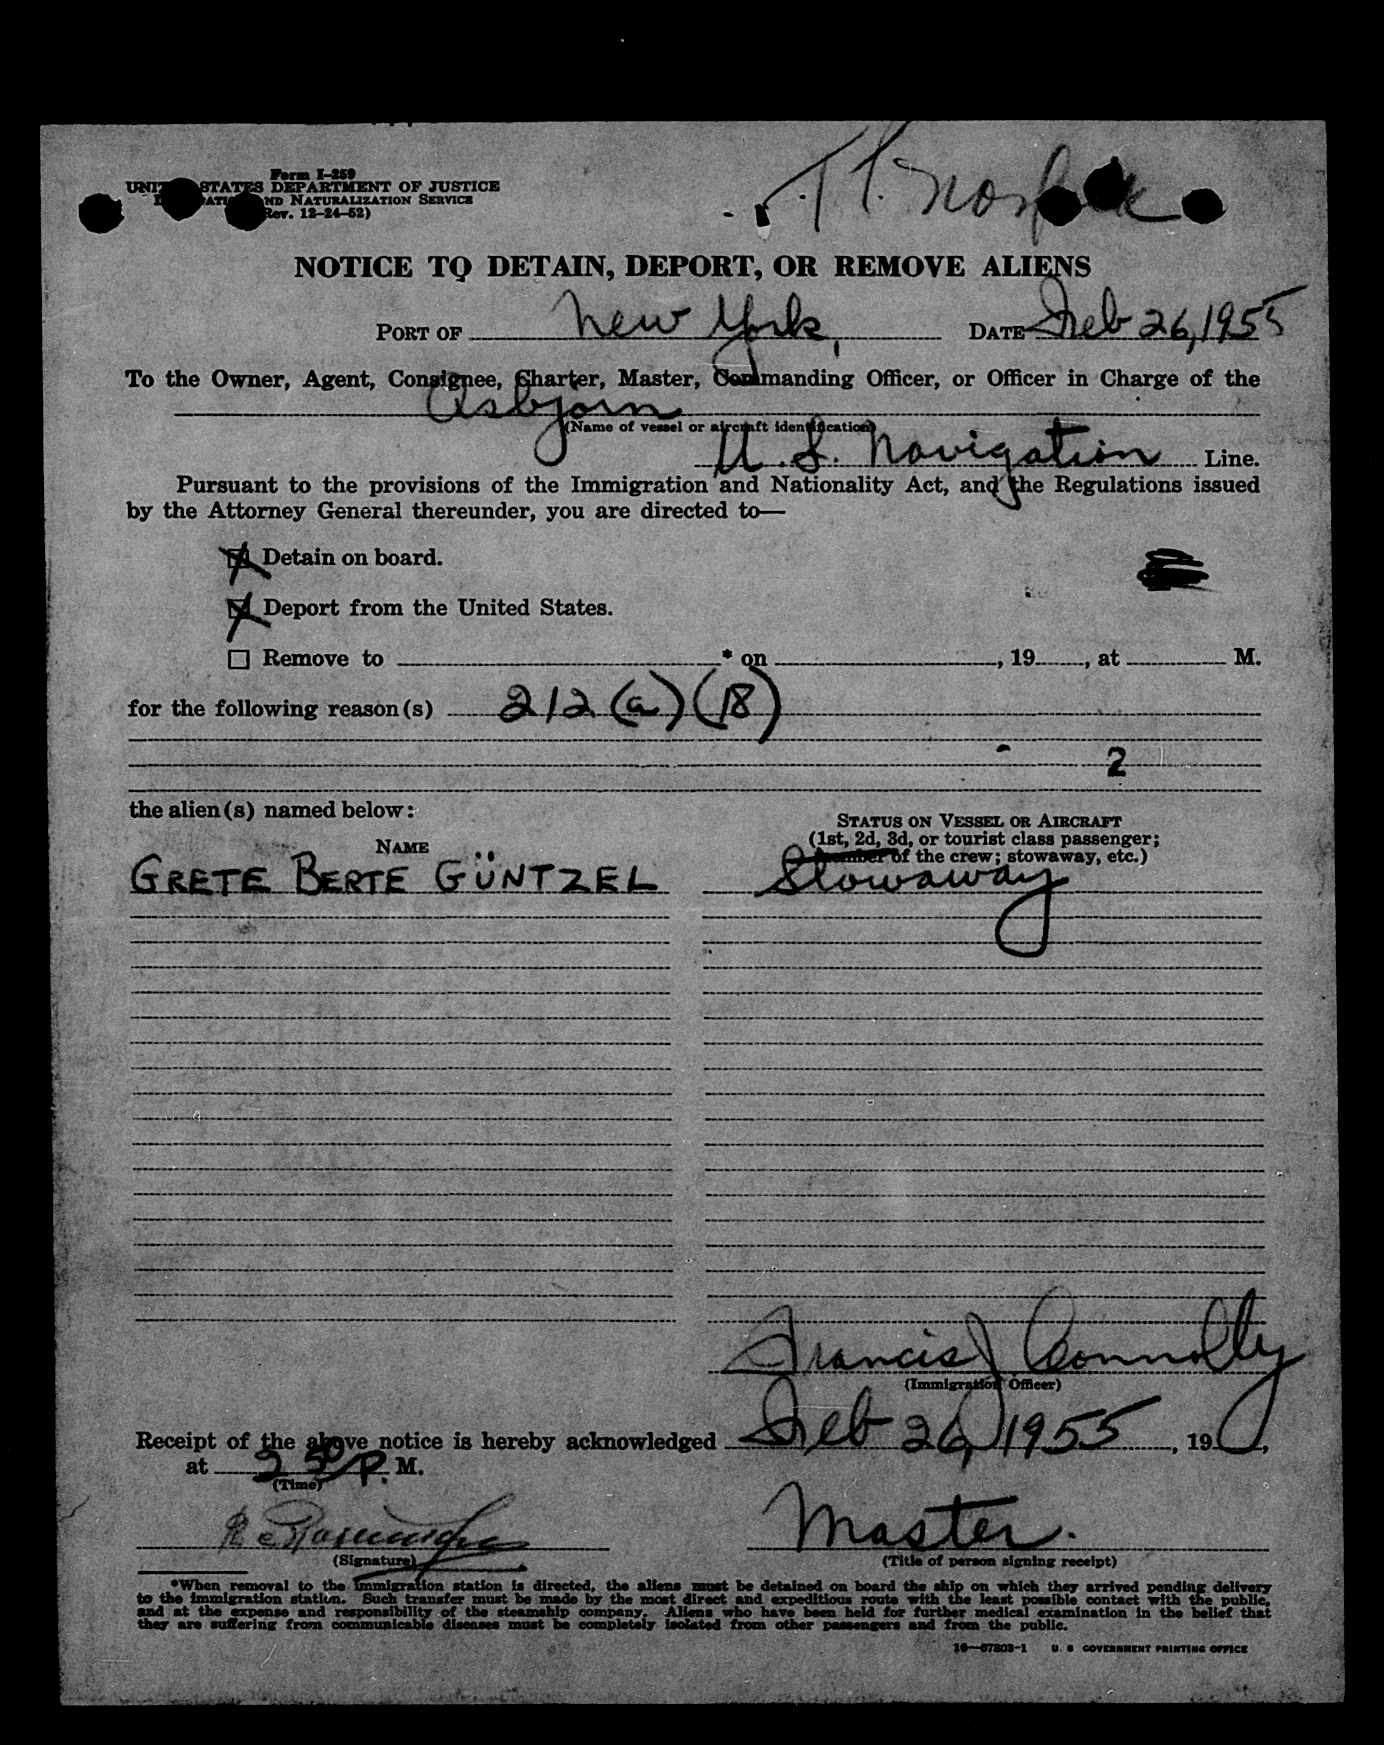 Form I-259
UNITED STATES DEPARTMENT OF JUSTICE
AND NATURALIZATION SERVICE
(Rev. 12-24-52)
Norfolk
NOTICE TO DETAIN, DEPORT, OR REMOVE ALIENS
PORT OF New York, DATE Feb 26, 1955
To the Owner, Agent, Consignee, Charter, Master, Commanding Officer, or Officer in Charge of the
Asbjorn
(Name of vessel or aircraft identification)
U.S. Navigation Line.
Pursuant to the provisions of the Immigration and Nationality Act, and the Regulations issued
by the Attorney General thereunder, you are directed to—
☒ Detain on board.
☒ Deport from the United States.
☐ Remove to * on , 19 , at M.
for the following reason(s) 212 (a) (18)
2
the alien(s) named below:
NAME
STATUS ON VESSEL OR AIRCRAFT
(1st, 2d, 3d, or tourist class passenger;
member of the crew; stowaway, etc.)
GRETE BERTE GÜNTZEL Stowaway
Francis J Connolly
(Immigration Officer)
Receipt of the above notice is hereby acknowledged Feb 26, 1955, 19 ,
at P. M.
(Time)
Master.
(Signature) (Title of person signing receipt)
*When removal to the immigration station is directed, the aliens must be detained on board the ship on which they arrived pending delivery
to the immigration station. Such transfer must be made by the most direct and expeditious route with the least possible contact with the public,
and at the expense and responsibility of the steamship company. Aliens who have been held for further medical examination in the belief that
they are suffering from communicable diseases must be completely isolated from other passengers and from the public.
16—67803-1 U. S. GOVERNMENT PRINTING OFFICE